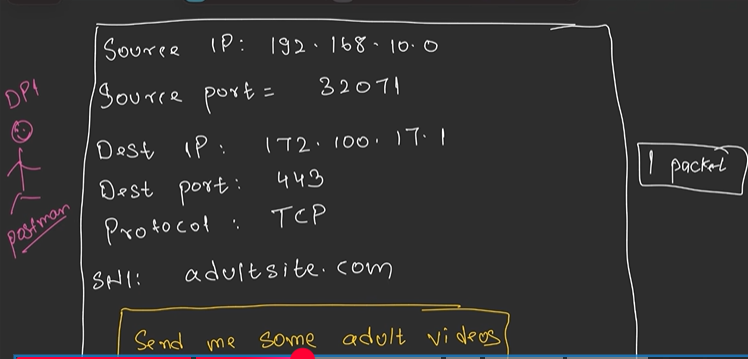 Source IP: 192.168.10.0
Source port = 32071
Dest IP: 172.100.17.1
Dest port: 443
Protocol : TCP
SNI: adultsite.com
Send me some adult videos
DPI
postman
1 packet